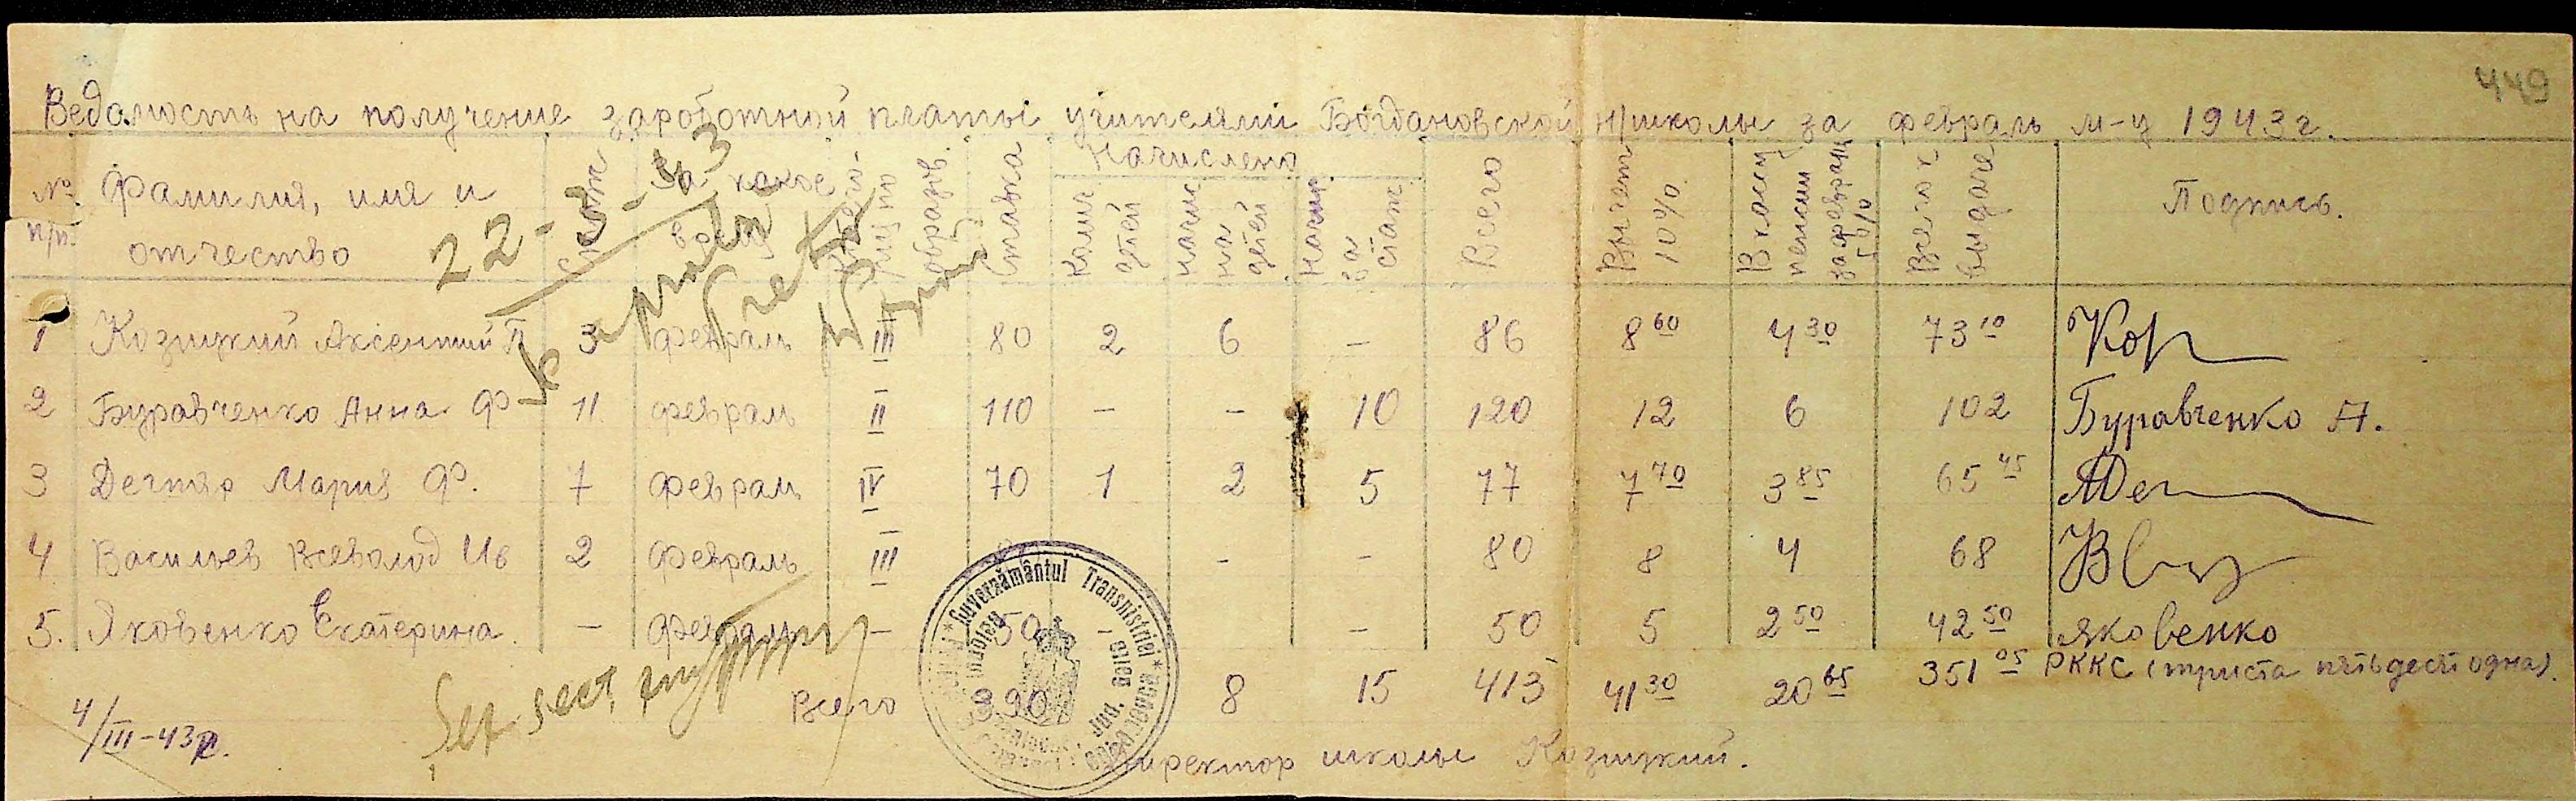 449
Ведомость на получение заработной платы учителями Богдановской н/школы за февраль м-ц 1943 г.
№ п/п. Фамилия, имя и отчество Стаж За какое время образов. Ставка Начислено Колич детей начис на детей начис. за стаж Всего Вычет 10% В кассу пенсии за февраль 5% Всего к выдаче Подпись.
22-3-43
1 Козицкий Аксентий П 3 февраль III 80 2 6 – 86 8 60 4 30 73 10
2 Буравченко Анна Ф 11 февраль II 110 – – 10 120 12 6 102 Буравченко А.
3 Дегтяр Мария Ф. 7 февраль IV 70 1 2 5 77 7 70 3 85 65 45
4 Васильев Всеволод Ив 2 февраль III - - 80 8 4 68
5. Яковенко Екатерина. – февраль – 50 - – 50 5 2 50 42 50 Яковенко
Всего 390 8 15 413 41 30 20 65 351 05 РККС (триста пятьдесят одна).
4/III-43 г.
Guvernământul Transnistriei
Директор школы Козицкий.